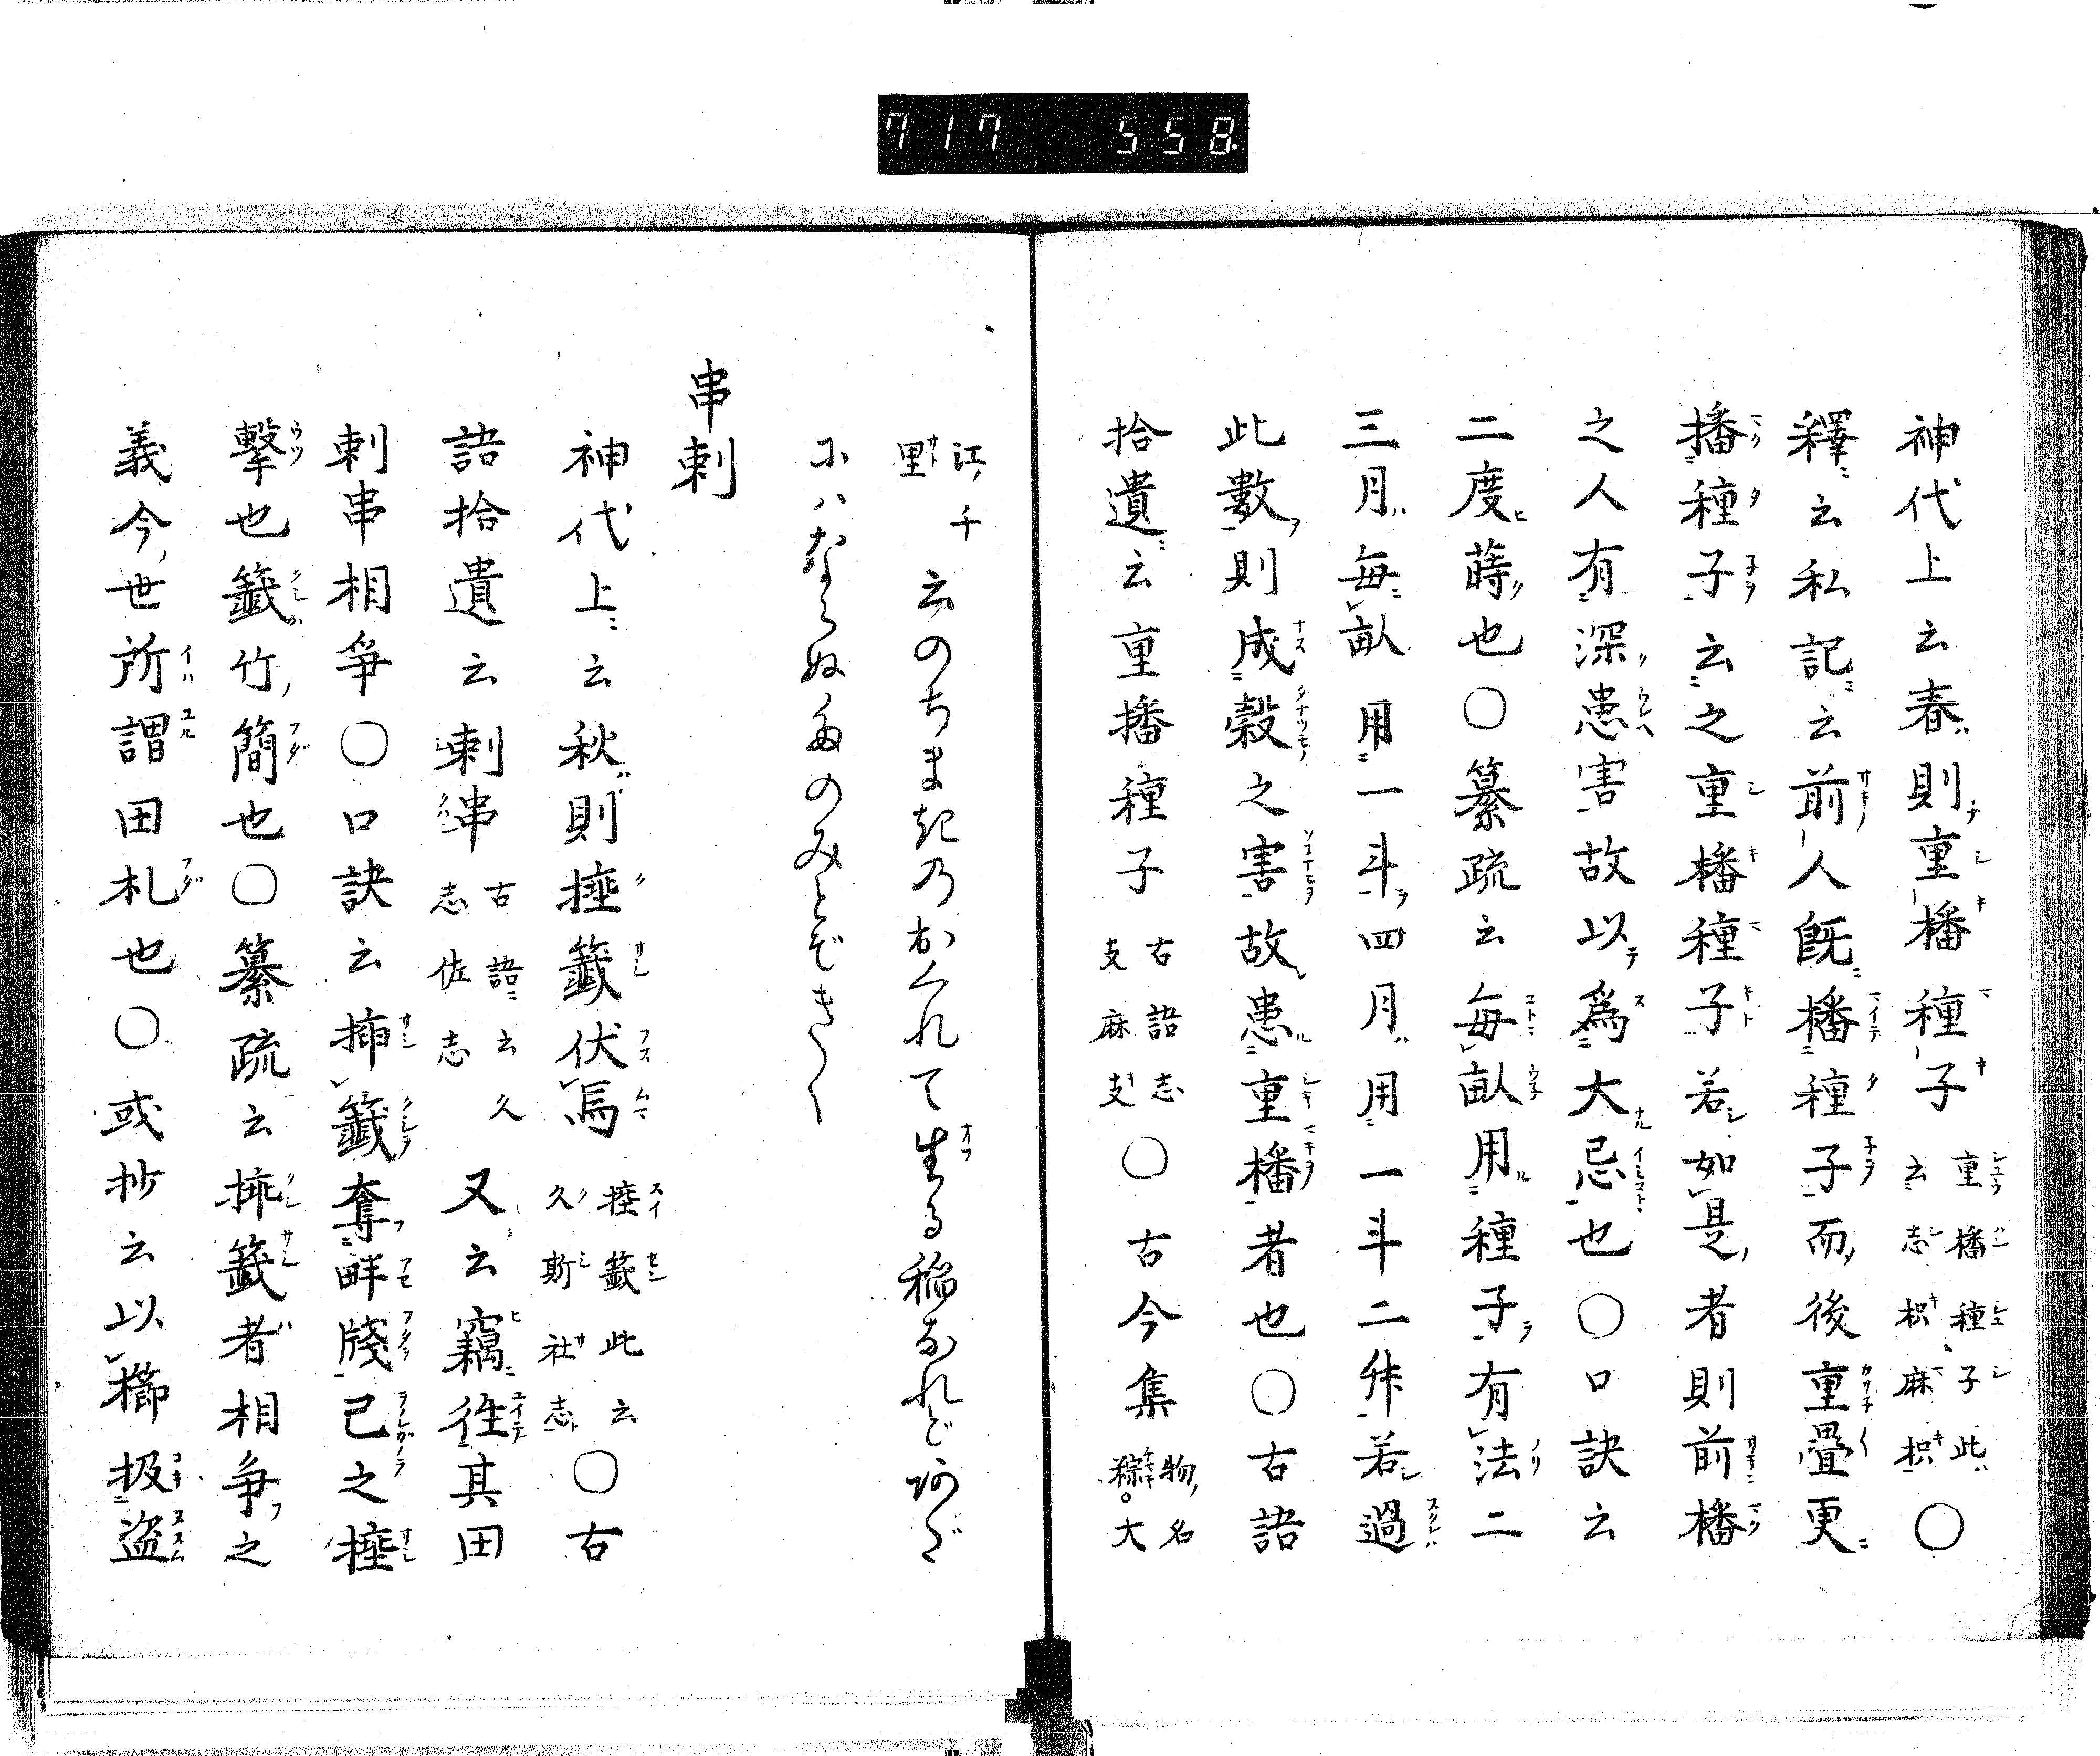 717 558.
神代上云春則重播種子 重播種子此云志枳麻枳 〇
釋云私記云前人既播種子而後重疊更
播種子云之重播種子若如是者則前播
之人有深患害故以為大忌也〇口訣云
二度蒔也〇纂疏云毎畝用種子有法二
三月毎畝用一斗四月用一斗二升若過
此數則成穀之害故患重播者也〇古語
拾遺云重播種子 古語志支麻支 〇古今集 物名粽。大
江千里 云のちまきのおくれて生る稲なれどあだ
にハならぬたのみとぞきく
串刺
神代上云秋則捶籤伏馬 捶籤此云久斯社志 〇古
語拾遺云刺串 古語云久志佐志 又云竊往其田
刺串相爭〇口訣云挿籤奪畔牋己之捶
擊也籤竹簡也〇纂疏云捶籤者相爭之
義今世所謂田札也〇或抄云以櫛扱盜